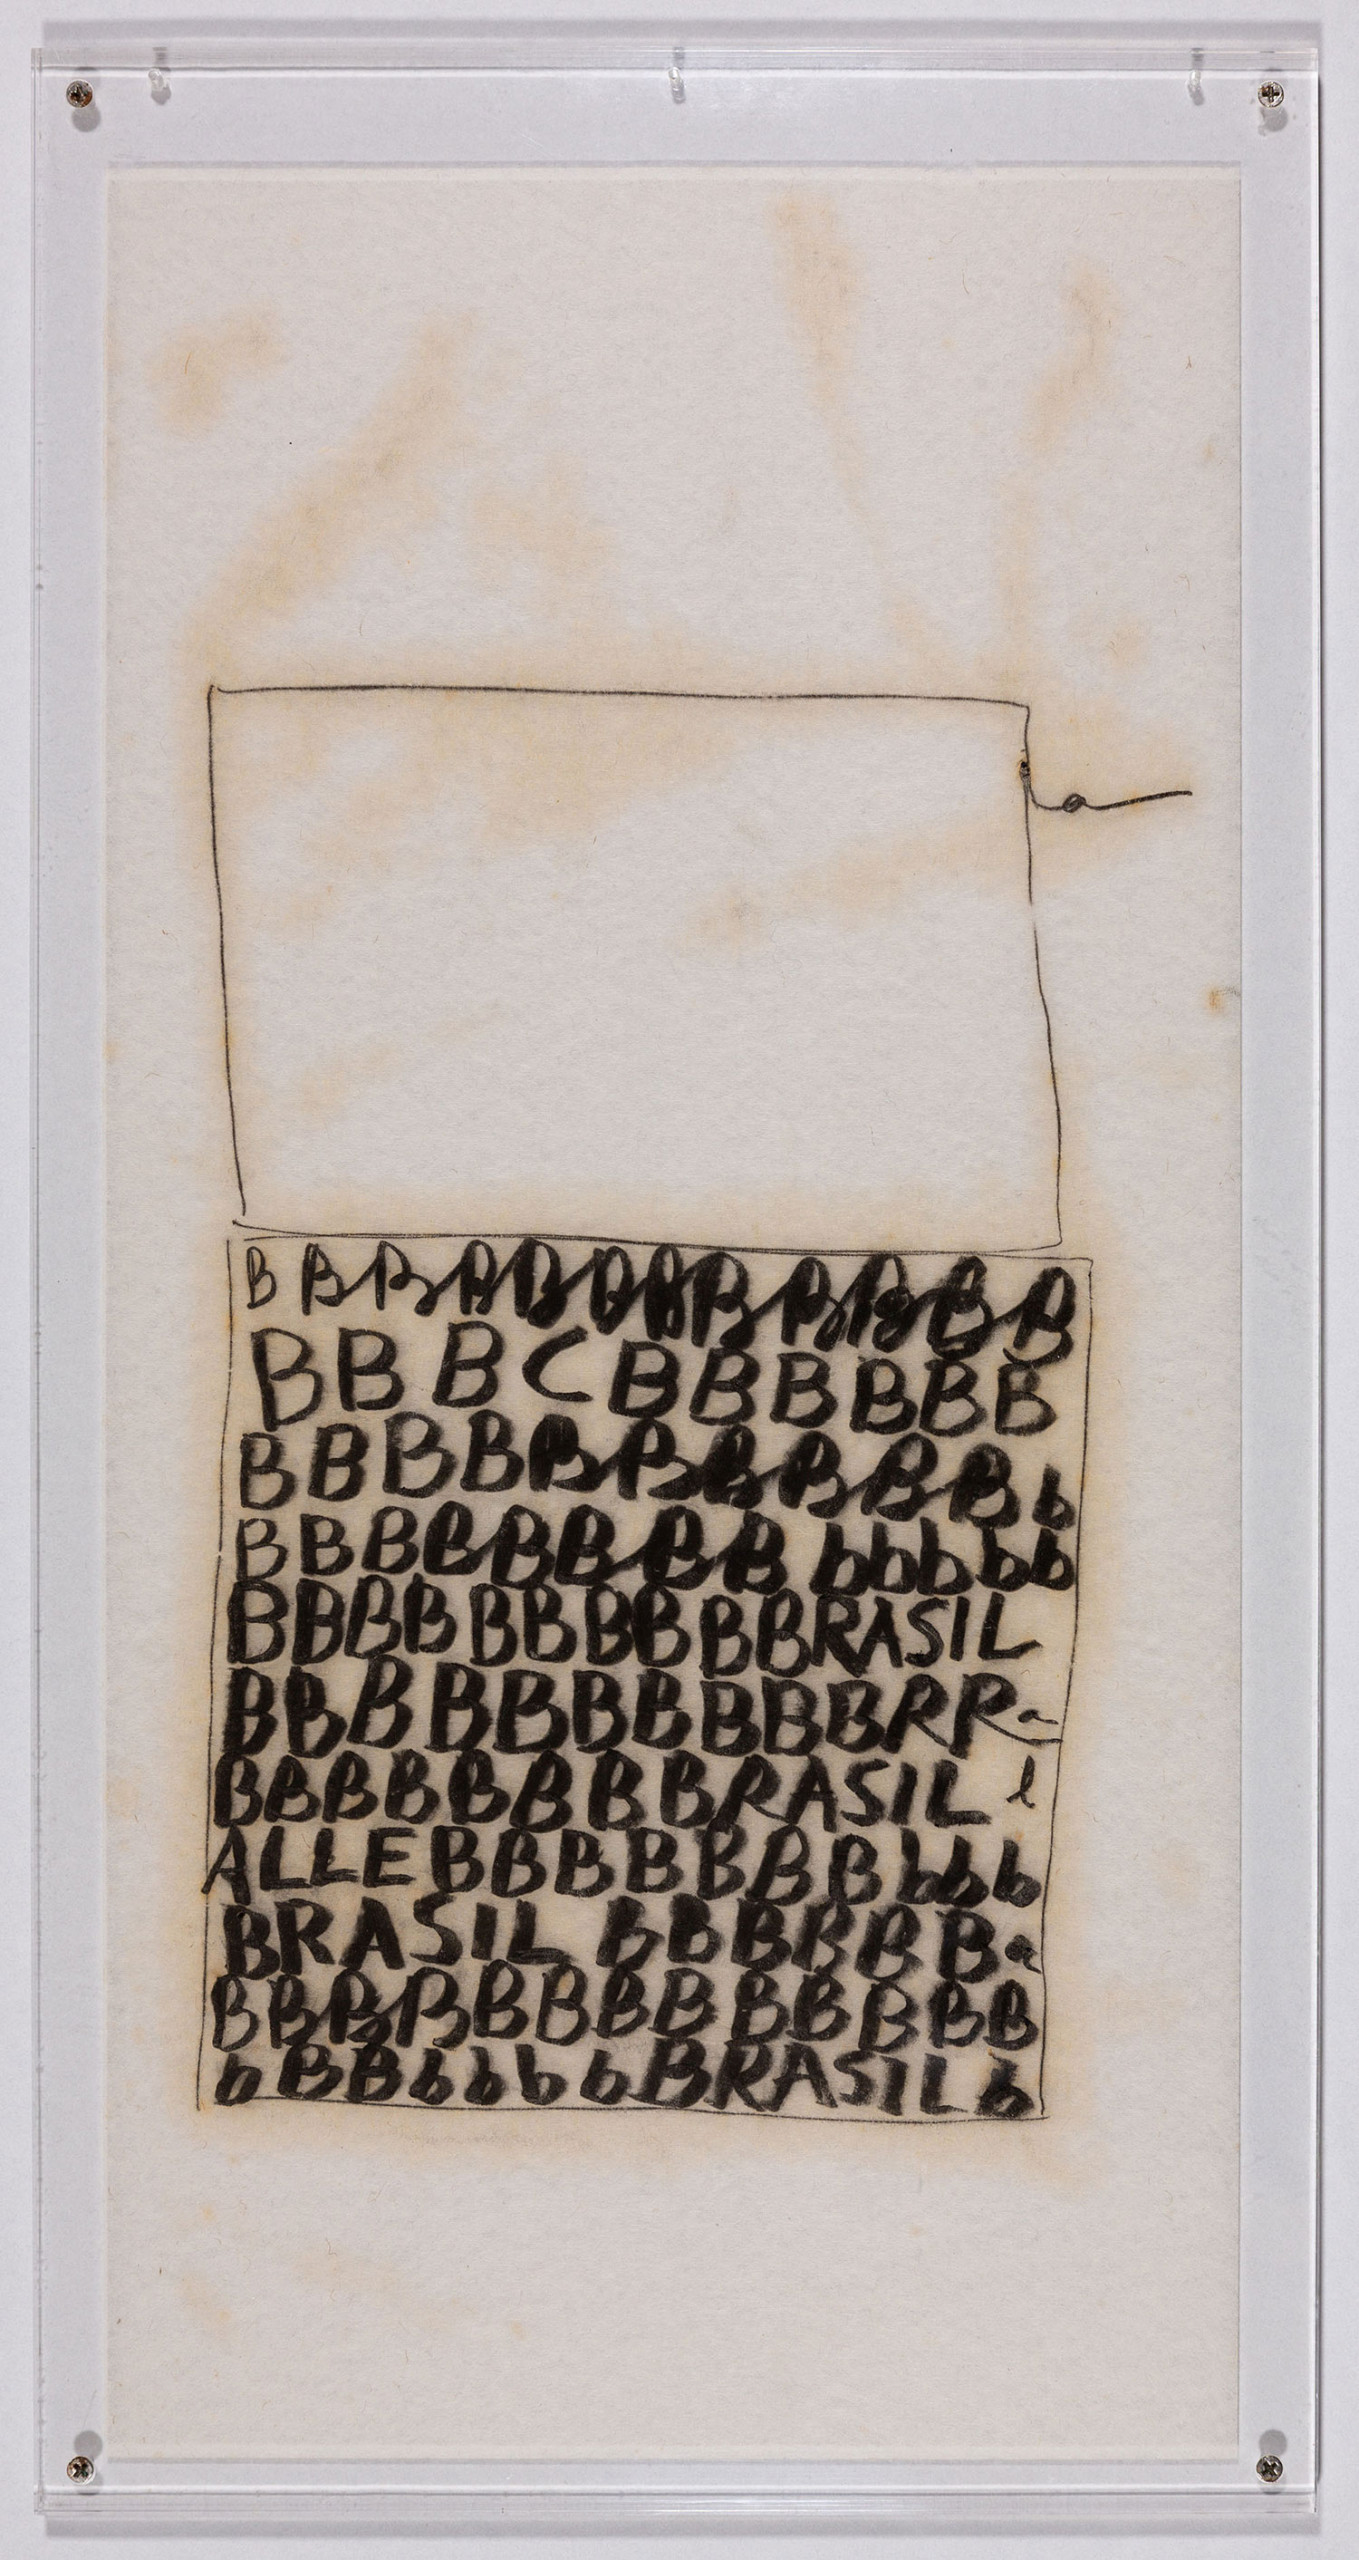 a
B B B B B B B B B B B B
B B B C B B B B B B
B B B B B B B B B B b
B B B B B B B B b b b b b
B B B B B B B B B BRASIL
B B B B B B B B B B R R a
B B B B B B B BRASIL l
ALLE B B B B B B B b b b
BRASIL B B B B B B a
B B B B B B B B B B B B B
b B B b b b b BRASIL b